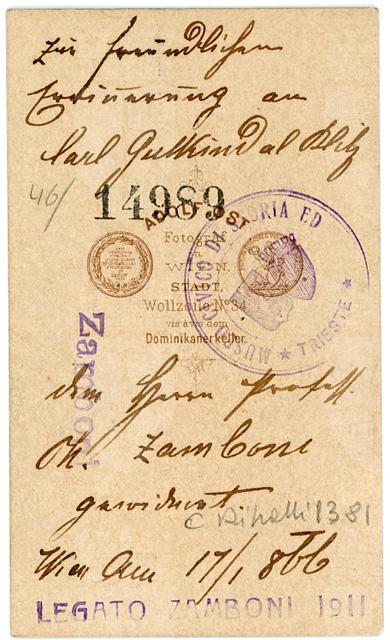 Zur freundlichen
Erinnerung an
Carl Gutkind al Blitz
46/
14989
ADOLF OST
Fotograf
WIEN,
STADT,
Wollzeile No 34
vis à vis dem
Dominikanerkeller.
MUSEO CIVICO DI STORIA ED
TRIESTE
Zamboni
dem Herrn Profess.
Zamboni
gewidmet
1381
Wien Am 17/1 866
LEGATO ZAMBONI 1911